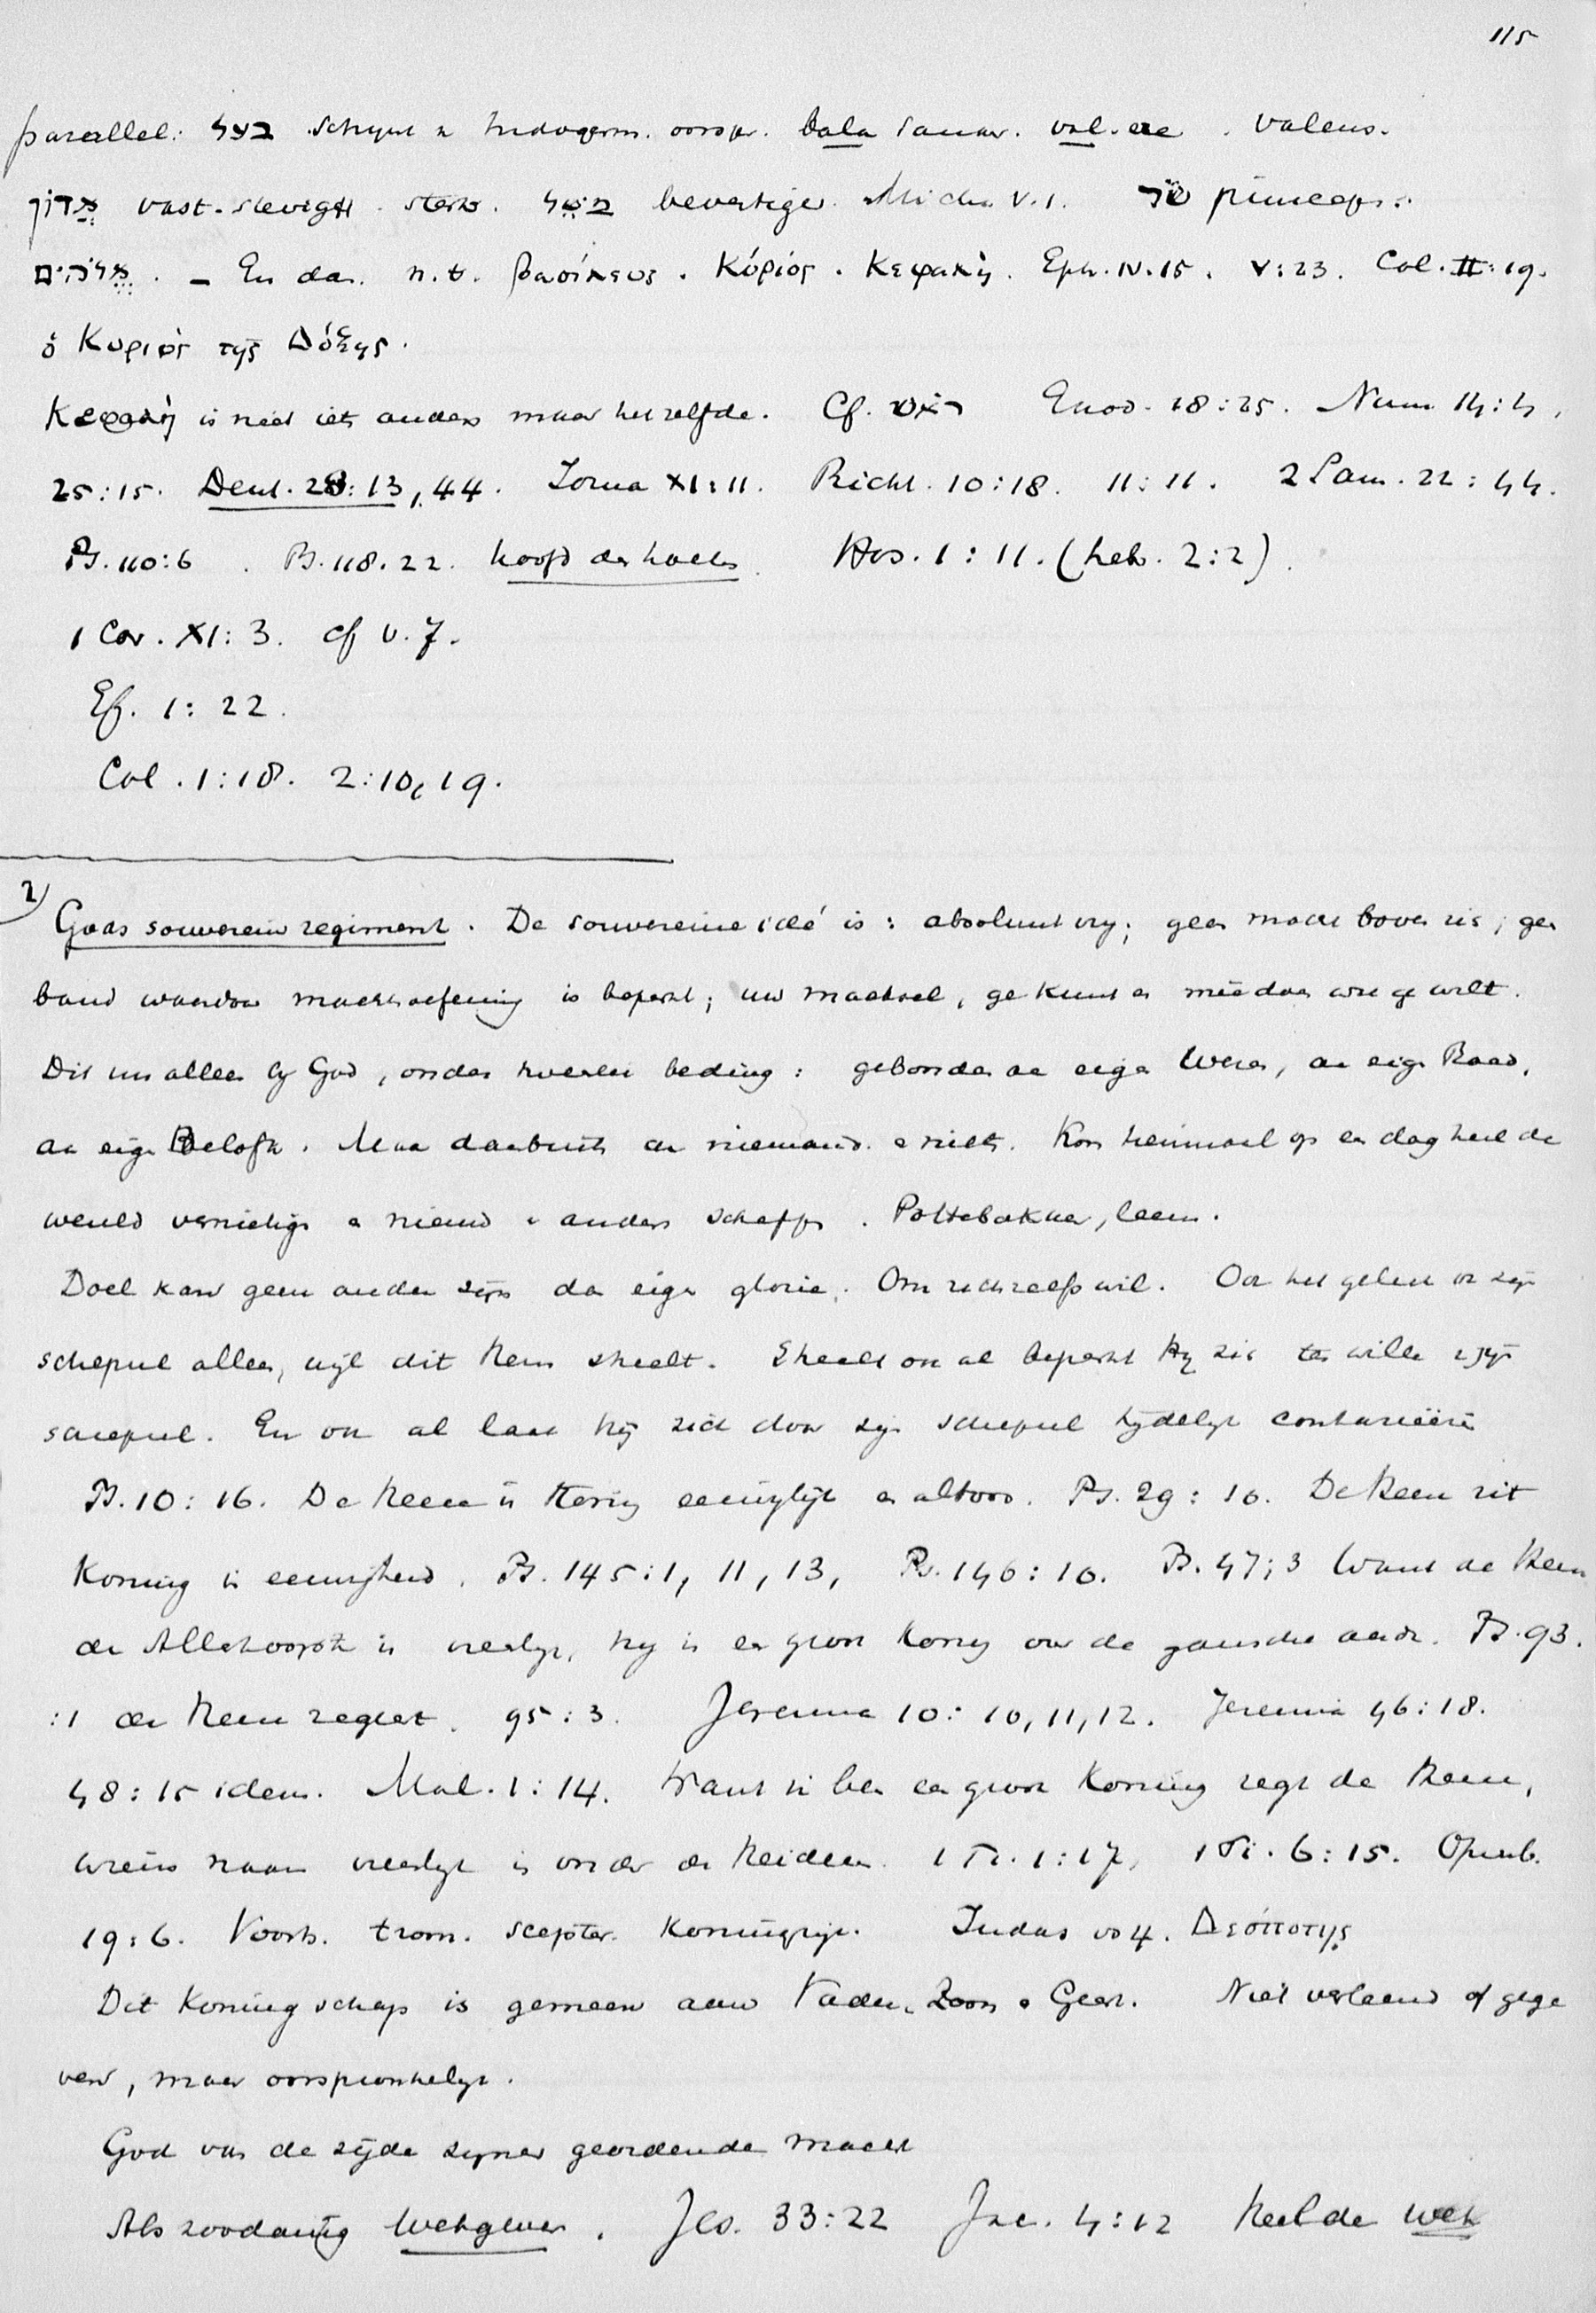 115
parallel: בעל schynt n Indogerm. oorspr. bala sanscr. val-ere . valens.
אדון vast-stevight sterk. משל bevestigen Micha V.1. שר princeps.
אלהים. – En dan n.t. βασίλευς. Κύριός. Κεφαλὴ. Eph. IV.15. V:23. Col. II:19.
ὁ Κυριός τῆς Δόξης.
Κεφαλὴ is niet iets anders maar hetzelfde. Cf. ראש Exod. 18:25. Num 14:4,
25:15. Deut. 28:13, 44. Jozua XI:11. Richt. 10:18. 11:11. 2 Sam. 22:44.
Ps. 110:6. Ps. 118.22. hoofd des hoeks Hos. 1:11. (heb. 2:2).
1 Cor. XI:3. cf v. 7.
Ef. 1:22.
Col. 1:18. 2:10, 19.
2) Gods souverein regiment. De souvereine idé is: absoluut vry; geen macht boven zich; geen
band waardoor machtsoefening is beperkt; uw maaksel, ge kunt er meê doen wat ge wilt.
Dit nu alleen by God, onder tweeërlei beding: gebonden aan eigen Wezen, aan eigen Raad,
aan eigen Belofte. Maar daarbuiten aan niemand en niets. Kon helemaal op een dag heel de
wereld vernietigen en nieuw en anders scheppen. Pottebakker, leem.
Doel kan geen ander zijn dan eigen glorie. Om zichzelfs wil. Ook het geluk van zijn
schepsel alleen, wijl dit Hem streelt. Streelt ook al beperkt Hy zich ter wille zijn
schepsel. En ook al laat hij zich door zijn schepsel tydelijk contrariëeren
Ps. 10:16. De Heere is Koning eeuwiglijk en altoos. Ps. 29:10. De Heere zit
Koning in eeuwigheid. Ps. 145:1, 11, 13, Ps. 146:10. Ps. 47:3 Want de Heere
de Allerhoogste is vreeslijk, hy is een groot Koning over de gansche aarde. Ps. 93.
:1 de Heere regeert. 95:3. Jeremia 10:10, 11, 12. Jeremia 46:18.
48:15 idem. Mal. 1:14. Want ik ben een groot Koning zegt de Heere,
wiens naam vreeslijk is onder de Heidenen. 1 Ti. 1:17, 1 Ti. 6:15. Openb.
19:6. Voorts. troon. scepter. Koningrijk. Judas vs 4. Δεσπότης
Dit Koningschap is gemeen aan Vader, Zoon en Geest. Niet verleend of gege
ven, maar oorspronkelijk.
God van de zijde zyner geordende macht
Als zoodanig Wetgever. Jes. 33:22 Jac. 4:12 Heel de Wet